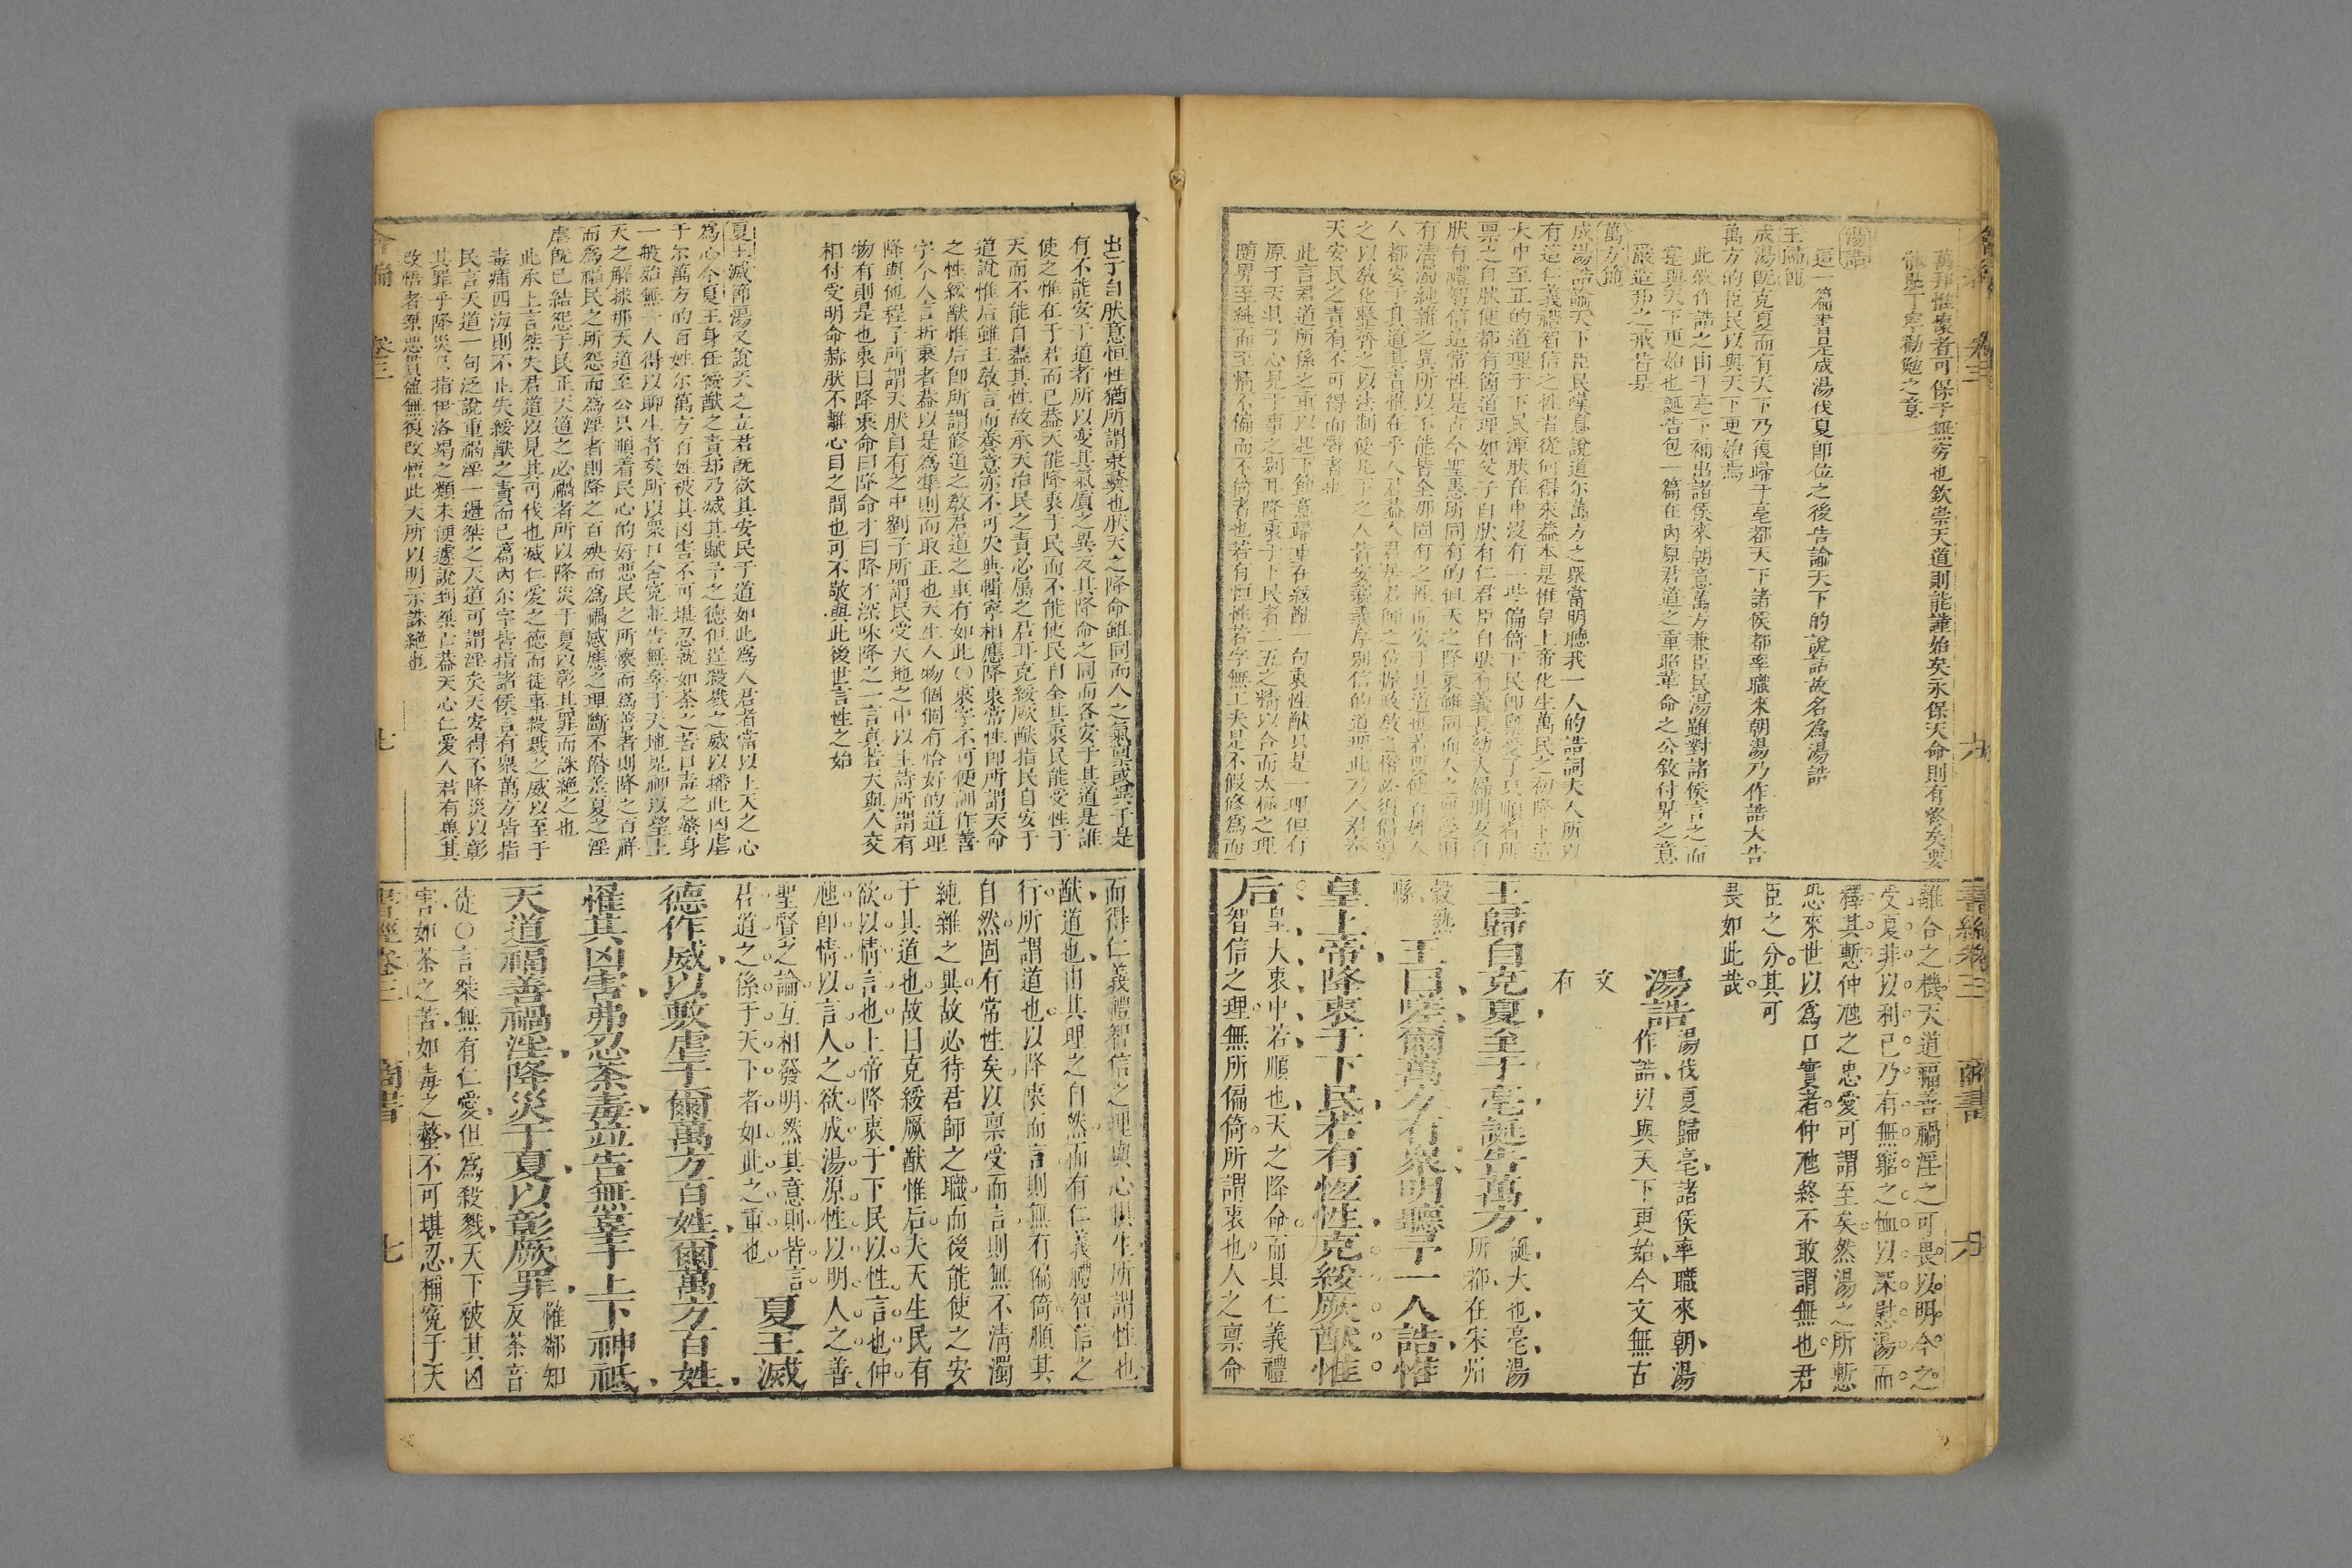 萬邦惟懷者可保于無穷也欽崇天道則能謹始矣永保天命則有終矣要
丁寧勸勉之意
湯誥
這一篇書是成湯伐夏即位之後告諭天下的說話故名為湯誥
王歸節
成湯既克夏而有天下乃復歸于亳都天下諸侯都率職來朝湯乃作誥大告
萬方的臣民以與天下更始焉
此敘作誥之由于亳下補出諸侯來朝意萬方兼臣民湯雖對諸侯言之而
寔與天下更始也誕告包一篇在內原君道之重昭革命之公敘付畀之意
嚴造邦之戒皆是
萬方節
成湯誥諭天下臣民嘆息說道尔萬方之眾當明聽我一人的誥詞夫人所以
有這仁義禮智信之性者從何得來葢本是惟皇上帝化生萬民之初降下這
大中至正的道理于下民渾肰在中沒有一些偏倚下民即稟受了只順着所
稟之自肰便都有箇道理如父子自肰有仁君臣自肰有義長幼夫婦朋友自
肰有禮智信這常性是古今聖愚所同有的但天之降衷雖同而人之稟受則
有清濁純雜之異所以不能皆全那固有之性而安于其道也若要使百姓人
人都安于其道其責惟在乎人君葢人君居君師之位握政教之權必須倡導
之以教化整齊之以法制使凡天下之人皆安於義序別信的道理此乃人君奉
天安民之責有不可得而辭者也
此言君道所係之重以起下節意歸重在綏猷一句衷性猷只是一理但有
原于天具于心見于事之別耳降衷于下民者二五之精以合而太極之理
隨畀至純而至精不偏而不倚者也若有恒性若字無工夫是不假修為而
離合之機天道福善禍淫之可畏以明今之
受夏非以利己乃有無窮之恤以深慰湯而
釋其慙仲虺之忠愛可謂至矣然湯之所慙
恐來世以為口實者仲虺終不敢謂無也君
臣之分其可
畏如此哉
湯誥湯伐夏歸亳諸侯率職來朝湯
作誥以與天下更始今文無古
文
有
王歸自克夏至于亳誕告萬方誕大也亳湯
所都在宋州
穀熟
縣王曰嗟爾萬方有衆明聽予一人誥惟
皇上帝降衷于下民若有恆性克綏厥猷惟
后皇大衷中若順也天之降命而具仁義禮
智信之理無所偏倚所謂衷也人之稟命
出于自肰意恒性猶所謂秉彝也肰天之降命雖同而人之氣稟或異于是
有不能安于道者所以变其氣質之異及其降命之同而各安于其道是誰
使之惟在于君而已葢天能降衷于民而不能使民自全其衷民能受性于
天而不能自盡其性故承天治民之責必属之君耳克綏厥猷指民自安于
道說惟后雖主敎言而養意亦不可失與輯寧相應降衷常性即所謂天命
之性綏猷惟后即所謂修道之敎君道之重有如此〇衷字不可便訓作善
字今人言折衷者葢以是為準則而取正也天生人物個個有恰好的道理
降與他程子所謂天肰自有之中劉子所謂民受天地之中以生詩所謂有
物有則是也衷曰降衷命曰降命才曰降才深味降之一言真若天與人交
相付受明命赫肰不離心目之間也可不敬與此後世言性之始
夏王滅節湯又說天之立君既欲其安民于道如此為人君者當以上天之心
為心今夏王身任綏猷之責却乃滅其賦予之德但逞殺戮之威以播此凶虐
于尔萬方的百姓尔萬方百姓被其凶害不可堪忍就如荼之苦口毒之螫身
一般始無一人得以聊生者矣所以眾口含冤並告無辜于天地鬼神以望上
天之解拯那天道至公只順着民心的好惡民之所懷而為善者則降之百祥
而為福民之所怨而為淫者則降之百殃而為禍感應之理斷不僭差夏之淫
虐既已結怨于民正天道之必禍者所以降災于夏以彰其罪而誅絕之也
此承上言桀失君道以見其可伐也滅仁愛之德而徒事殺戮之威以至于
毒痛四海則不止失綏猷之責而已篇內尔字皆指諸侯言有眾萬方皆指
民言天道一句泛說重禍淫一邊桀之天道可謂淫矣天安得不降災以彰
其罪乎降災只指伊洛竭之類未便遽說到桀亡葢天心仁愛人君有異其
改悟者桀惡貫盈無復改悟此天所以明示誅絕也
而得仁義禮智信之理與心俱生所謂性也
猷道也由其理之自然而有仁義禮智信之
行所謂道也以降衷而言則無有偏倚順其
自然固有常性矣以稟受而言則無不清濁
純雜之異故必待君師之職而後能使之安
于其道也故曰克綏厥猷惟后夫天生民有
欲以情言也上帝降衷于下民以性言也仲
虺即情以言人之欲成湯原性以明人之善
聖賢之論互相發明然其意則皆言
君道之係于天下者如此之重也夏王滅
德作威以敷虐于爾萬方百姓爾萬方百姓
罹其凶害弗忍荼毒並告無辜于上下神祇
天道福善禍淫降災于夏以彰厥罪惟鄰知
反荼音
徒〇言桀無有仁愛但為殺戮天下被其凶
害如荼之苦如毒之螫不可堪忍稱冤于天
書經卷三 商書 七